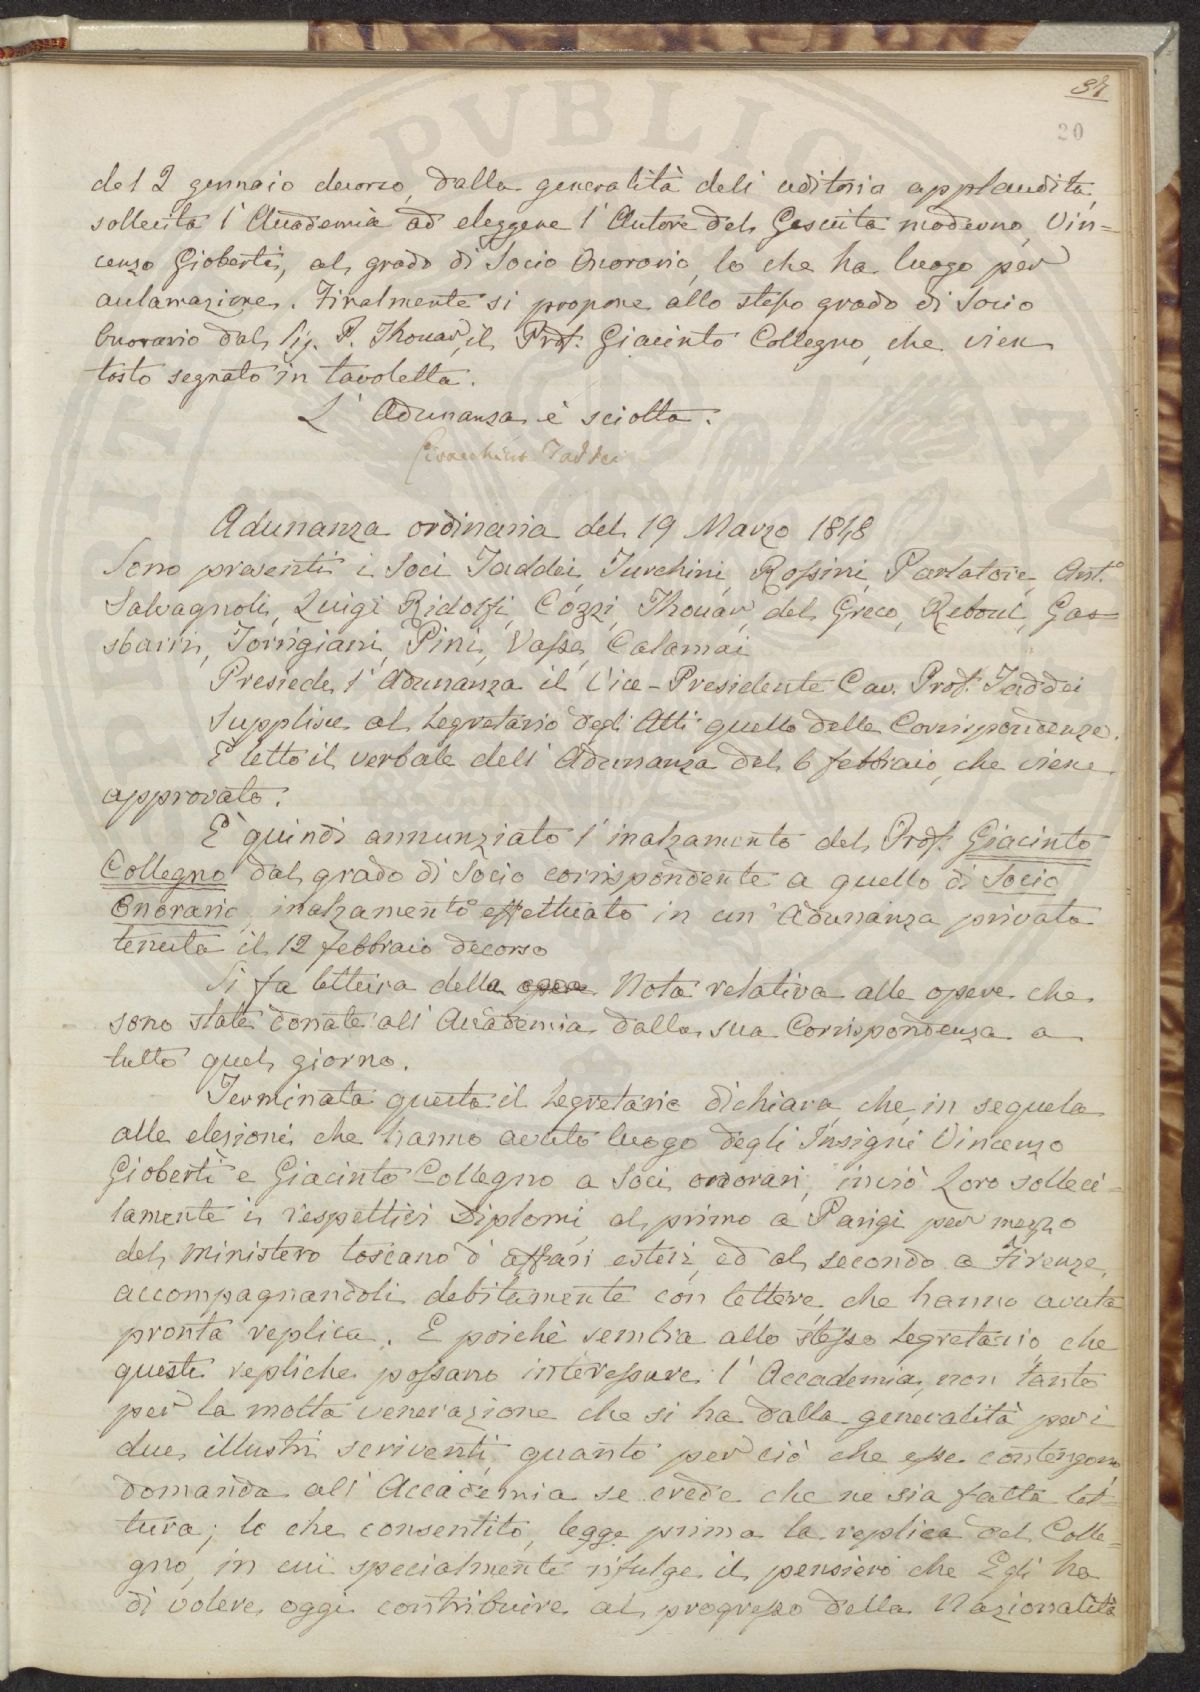 37
20
del 2 gennaio decorso, dalla generalità dell'uditorio applaudita,
sollecita l'Accademia ad eleggere l'Autore del Gesuita moderno, Vin=
cenzo Gioberti, al grado di Socio Onorario, lo che ha luogo per
aclamazione. Finalmente si propone allo stesso grado di Socio
Onorario dal Sig. P. Thouar, il Prof. Giacinto Collegno, che vien
tosto segnato in tavoletta.
L'Adunanza è sciolta.
Gioacchino Taddei
Adunanza ordinaria del 19 Marzo 1848
Sono presenti i Soci Taddei, Turchini, Rossini, Parlatore, Ant.°
Salvagnoli, Luigi Ridolfi, Cozzi, Thouar, del Greco, Reboul, Gas=
sbarri, Torrigiani, Pini, Vasse, Calamai
Presiede l'Adunanza il Vice-Presidente Cav. Prof. Taddei
Supplisce al Segretario degli Atti quello delle Corrispondenze.
È letto il verbale dell'Adunanza del 6 febbraio, che viene
approvato.
È quindi annunziato l'inalzamento del Prof. Giacinto
Collegno dal grado di Socio corrispondente a quello di Socio
Onorario, inalzamento effettuato in un'Adunanza privata
tenuta il 12 febbraio decorso
Si fa lettura della opera Nota relativa alle opere che
sono state donate all'Accademia dalla sua Corrispondenza a
tutto quel giorno.
Terminata questa il Segretario dichiara, che, in sequela
alle elezioni che hanno avuto luogo degli Insigni Vincenzo
Gioberti e Giacinto Collegno a Soci onorari, inviò Loro solleci=
tamente i respettivi Diplomi, al primo a Parigi per mezzo
del ministero toscano d'affari esteri, ed al secondo a Firenze,
accompagnandoli debitamente con lettere, che hanno avuta
pronta replica. E poichè sembra allo stesso Segretario, che
queste repliche possano interessare l'Accademia, non tanto
per la molta venerazione che si ha dalla generalità per i
due illustri scriventi, quanto per ciò che esse contengono
domanda all'Accademia se crede che ne sia fatta let=
tura; lo che consentito, legge prima la replica del Colle=
gno, in cui specialmente rifulge il pensiero che Egli ha
di volere oggi contribuire al progresso della Nazionalità